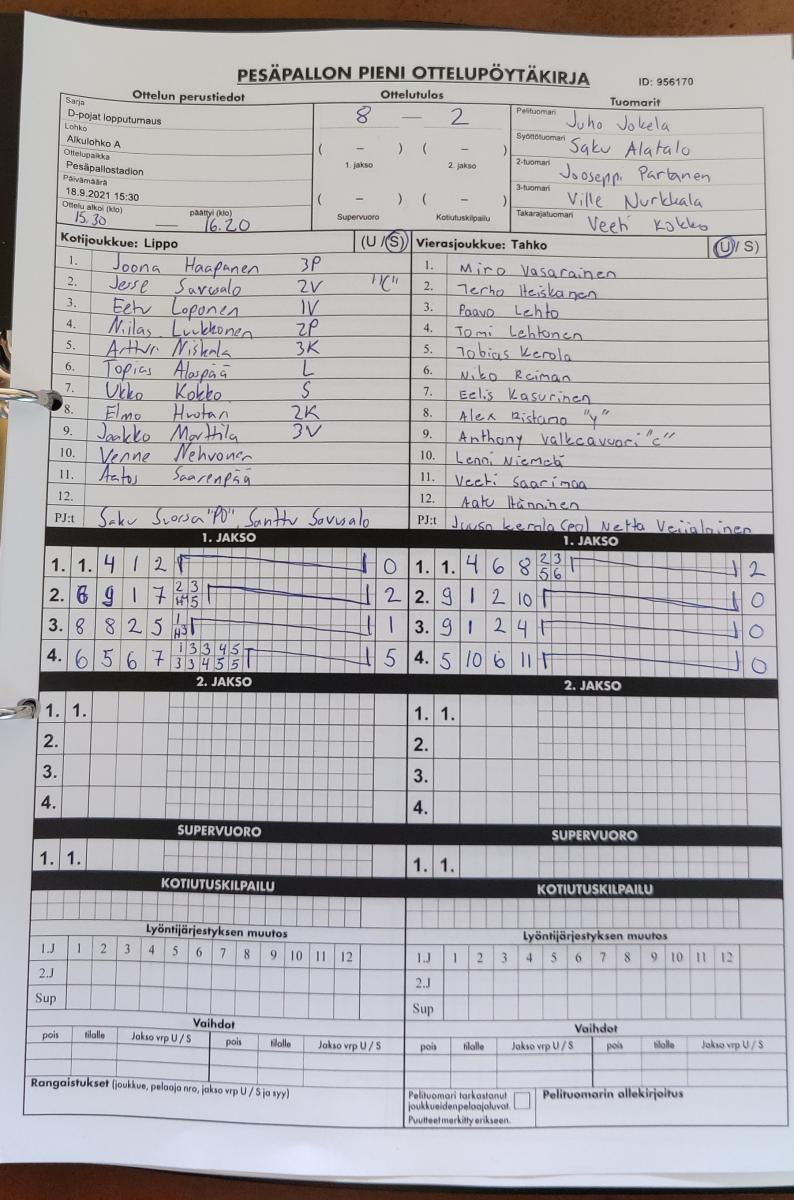 PESÄPALLON PIENI OTTELUPÖYTÄKIRJA ID: 956170
Ottelun perustiedot Ottelutulos Tuomarit
Sarja
D-pojat lopputurnaus
Lohko
Alkulohko A
Ottelupaikka
Pesäpallostadion
Päivämäärä
18.9.2021 15:30
Ottelu alkoi (klo) päättyi (klo)
15.30 — 16.20
8 — 2
( – ) ( – )
1. jakso 2. jakso
( – ) ( – )
Supervuoro Kotiutuskilpailu
Pelituomari Juho Jokela
Syöttötuomari Saku Alatalo
2-tuomari Jooseppi Partanen
3-tuomari Ville Nurkkala
Takarajatuomari Veeti Kokko
Kotijoukkue: Lippo (U / S)
1. Joona Haapanen 3P
2. Jesse Savusalo 2V "C"
3. Eetu Loponen 1V
4. Niilas Luukkonen 2P
5. Arttur Niskala 3K
6. Topias Alaspää L
7. Ukko Kokko S
8. Elmo Huotari 2K
9. Jaakko Marttila 3V
10. Venne Nehvonen
11. Aatos Saarenpää
12.
PJ:t Saku Suorsa "PO", Santtu Savusalo
Vierasjoukkue: Tahko (U / S)
1. Miro Vasarainen
2. Terho Heiskanen
3. Paavo Lehto
4. Tomi Lehtonen
5. Tobias Kerola
6. Niko Reiman
7. Eelis Kasurinen
8. Alex Ristamo "y"
9. Anthony Valkeavuori "c"
10. Lenni Niemelä
11. Veeti Saarimaa
12. Aatu Hänninen
PJ:t Juuso Kerola (PO) Netta Veijalainen
1. JAKSO 1. JAKSO
1. 1. 4 1 2 0
2. 6 9 1 7 2 3 5 2
3. 8 8 2 5 1 H3 1
4. 6 5 6 7 1 3 3 4 5 3 3 4 5 5 5
1. 1. 4 6 8 2 3 5 6 2
2. 9 1 2 10 0
3. 9 1 2 4 0
4. 5 10 6 11 0
2. JAKSO 2. JAKSO
1. 1. 1. 1.
2. 2.
3. 3.
4. 4.
SUPERVUORO SUPERVUORO
1. 1. 1. 1.
KOTIUTUSKILPAILU KOTIUTUSKILPAILU
Lyöntijärjestyksen muutos Lyöntijärjestyksen muutos
1.J 1 2 3 4 5 6 7 8 9 10 11 12 1.J 1 2 3 4 5 6 7 8 9 10 11 12
2.J 2.J
Sup Sup
Vaihdot Vaihdot
pois tilalle Jakso vrp U / S pois tilalle Jakso vrp U / S pois tilalle Jakso vrp U / S pois tilalle Jakso vrp U / S
Rangaistukset (joukkue, pelaaja nro, jakso vrp U / S ja syy)
Pelituomari tarkastanut
joukkueidenpelaajaluvat.
Puutteet merkitty erikseen.
Pelituomarin allekirjoitus